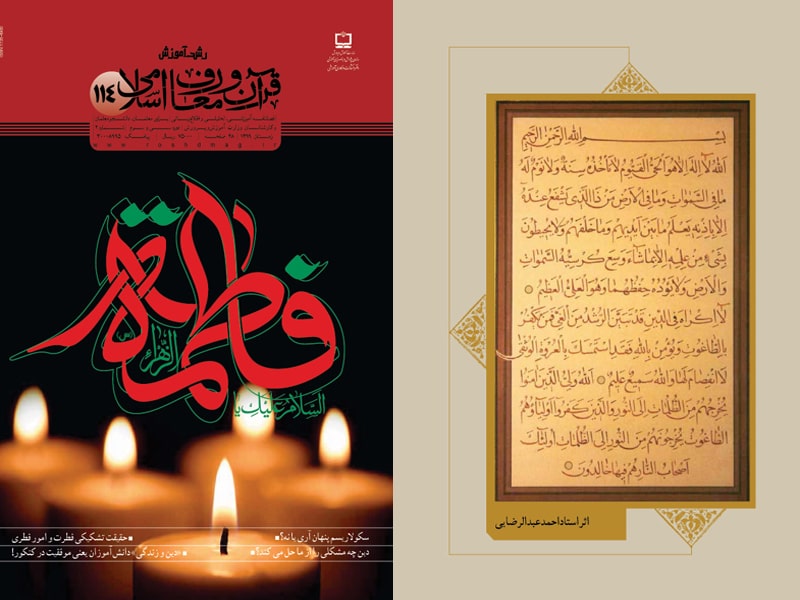 رشد آموزش
قرآن و معارف اسلامی
۱۱۴
www.roshdmag.ir
فاطمة
الزهراء
السلام علیک یا
سکولاریسم پنهان آری یا نه؟
دین چه مشکلی را از ما حل می کند؟
حقیقت تشکیکی فطرت و امور فطری
«دین و زندگی» دانش‌آموزان یعنی موفقیت در کنکور!
بسم الله الرحمن الرحیم
الله لا اله الا هو الحی القیوم لا تأخذه سنة ولا نوم له
ما فی السموات وما فی الارض من ذا الذی یشفع عنده
الا باذنه یعلم ما بین ایدیهم وما خلفهم ولا یحیطون
بشیء من علمه الا بما شاء وسع کرسیه السموات
والارض ولا یؤده حفظهما وهو العلی العظیم
لا اکراه فی الدین قد تبین الرشد من الغی فمن یکفر
بالطاغوت ویؤمن بالله فقد استمسک بالعروة الوثقی
لا انفصام لها والله سمیع علیم الله ولی الذین آمنوا
یخرجهم من الظلمات الی النور والذین کفروا اولیاؤهم
الطاغوت یخرجونهم من النور الی الظلمات اولئک
اصحاب النار هم فیها خالدون
اثر استاد احمد عبدالرضایی